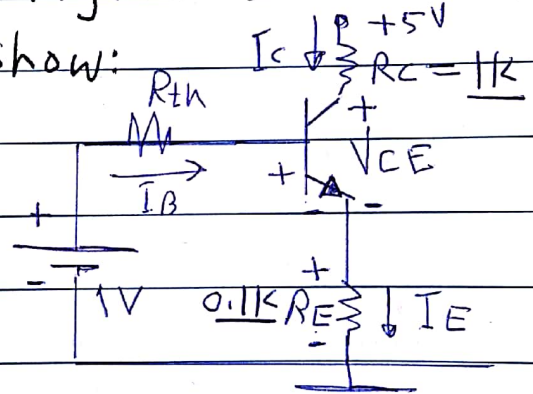 show:
IC +5V
RC = 1K
Rth
+
VCE
+
IB
-
+
+
- 1V
0.1K RE IE
-